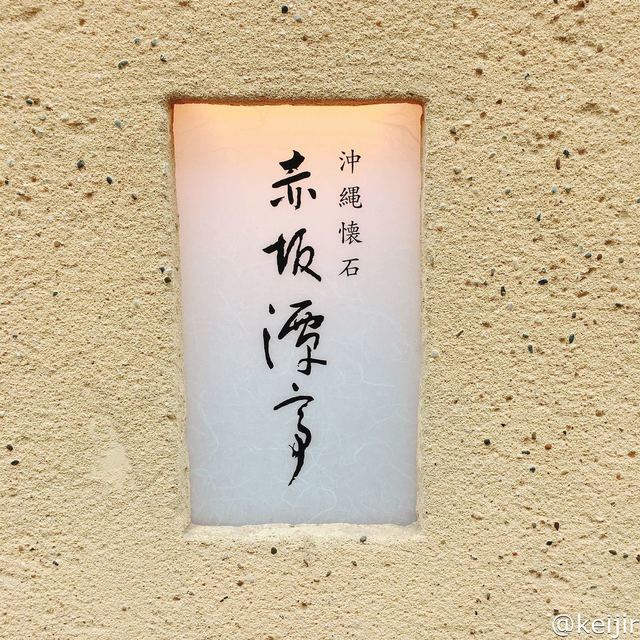 沖縄懐石
赤坂潭亭
@keijir